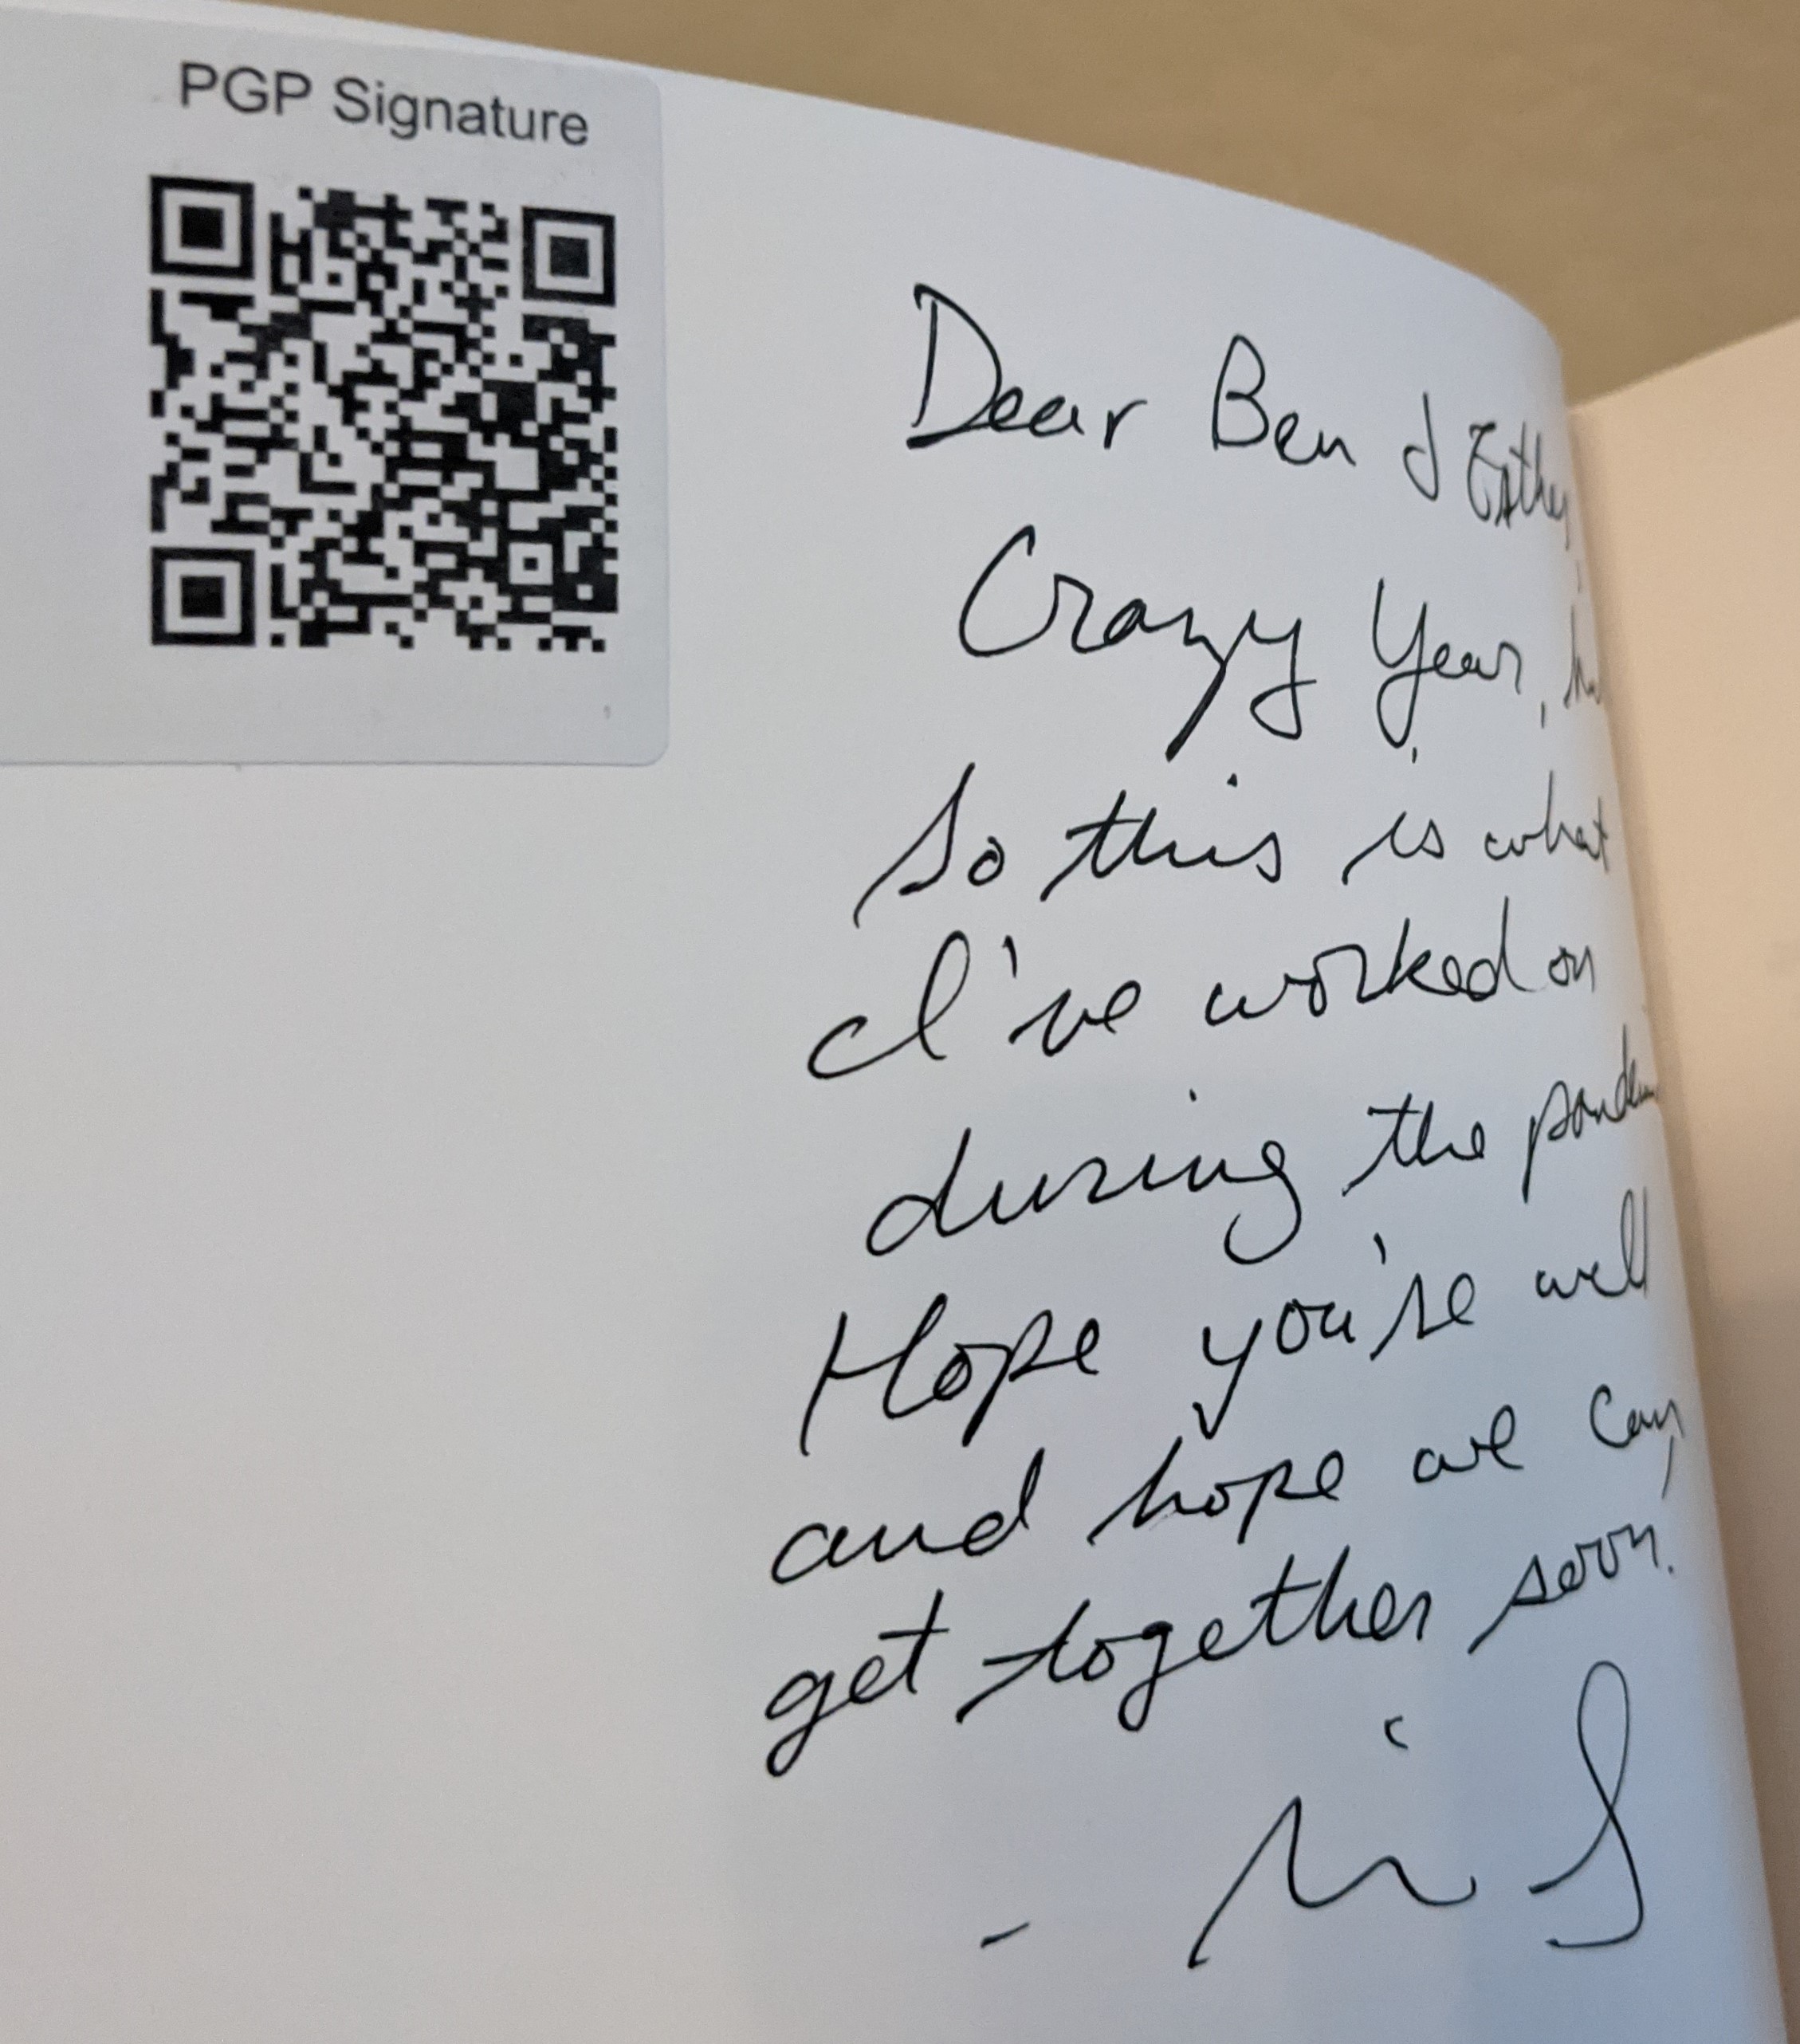 PGP Signature
Dear Ben & Esther,
Crazy Year,
So this is what
I've worked on
during the
Hope you're well
and hope we can
get together soon.
-